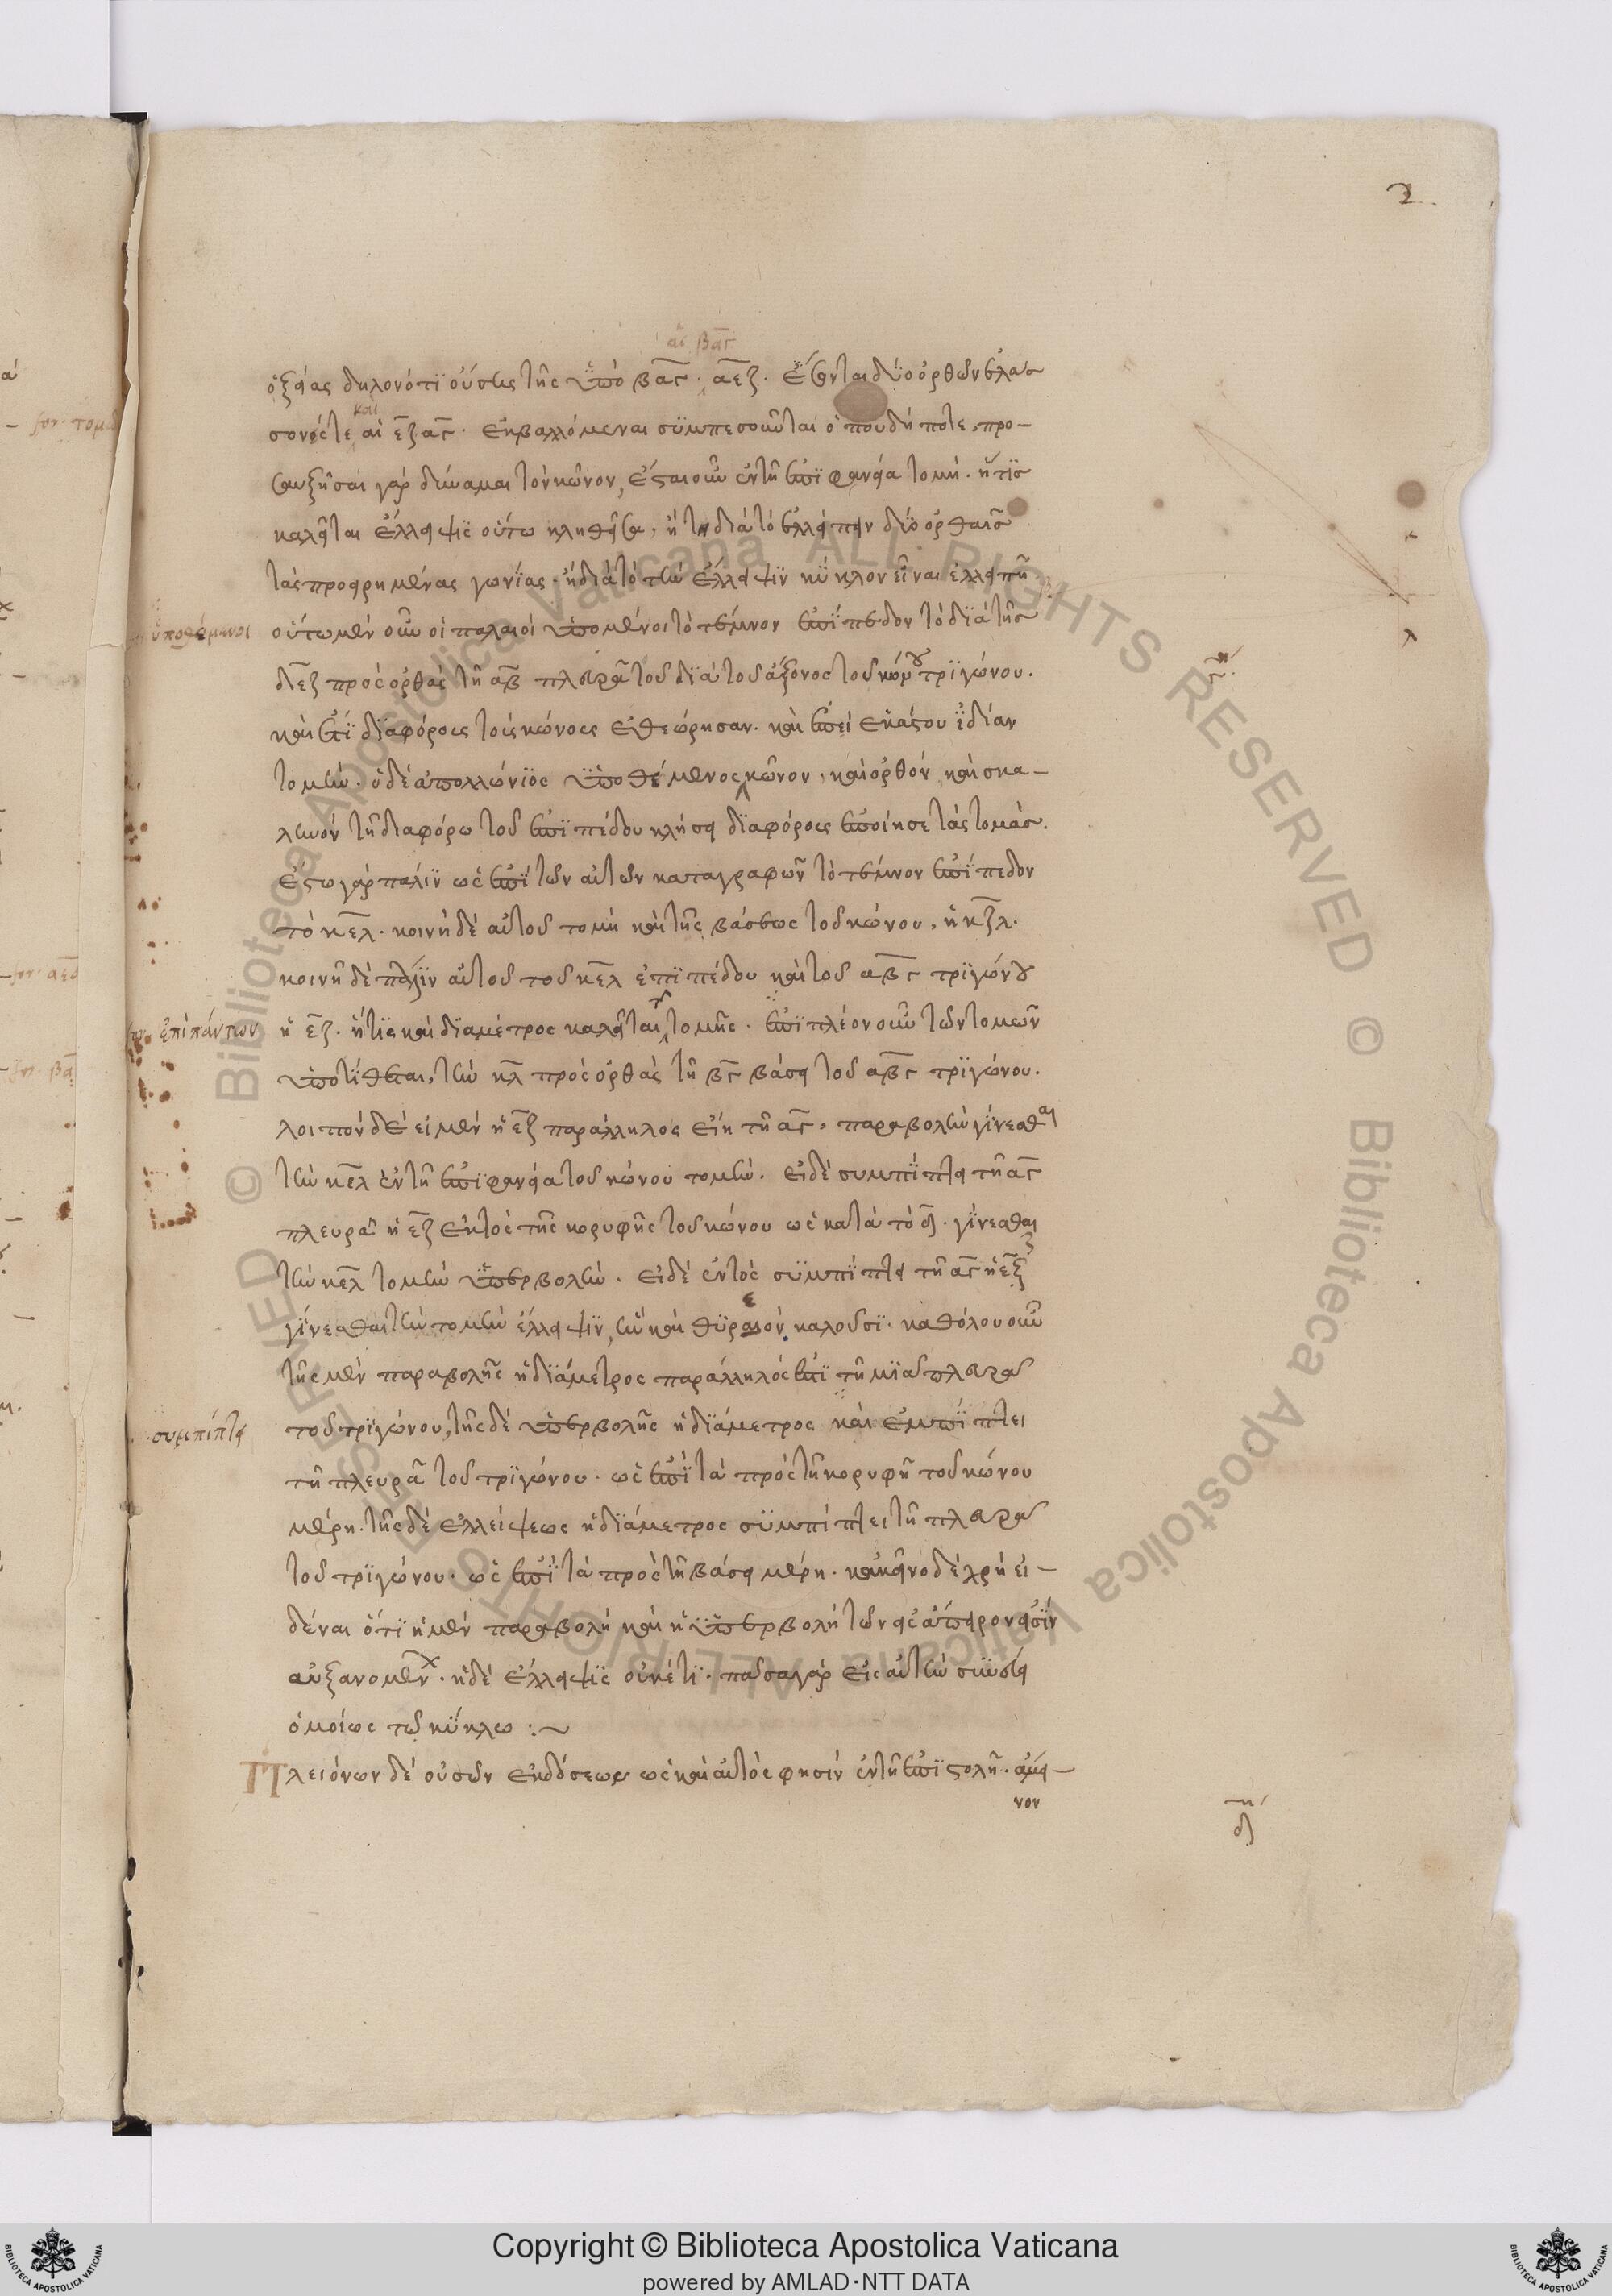 2
αἱ βα͞γ
ὀξείας δηλονότι οὔσης τῆς ὑπὸ βα͞γ · α͞εζ · ἔσονται δύο ὀρθῶν ἐλάσ
σονές τε καὶ αἱ ε͞ζ α͞γ · ἐκβαλλόμεναι συμπεσοῦνται ὁπουδήποτε · προ-
σαυξῆσαι γάρ δύναμαι τὸν κῶνον, ἔσται οὖν ἐν τῇ ἐπιφανείᾳ τομή · ἥτις
καλεῖται ἔλλειψις οὕτω κληθεῖσα, ἤτοι διὰ τὸ ἐλλείπειν δύο ὀρθαῖς
τὰς προειρημένας γωνίας · ἢ διὰ τὸ τὴν ἔλλειψιν κύκλον εἶναι ἐλλειπῆ
ὑποθέμενοι
οὕτω μὲν οὖν οἱ παλαιοὶ ὑπομένοι τὸ τέμνον ἐπίπεδον τὸ διὰ τῆς
δ͞εζ πρὸς ὀρθὰς τῇ α͞β πλευρᾷ τοῦ διὰ τοῦ ἄξονος τοῦ κώνου τριγώνου ·
καὶ ἐπὶ διαφόροις τοῖς κώνοις ἐθεώρησαν · καὶ ἐπὶ ἑκάστου ἰδίαν
τομὴν · ὁ δὲ ἀπολλώνιος ὑποθέμενος κῶνον, καὶ ὀρθὸν καὶ σκα-
ληνὸν τῇ διαφόρω τοῦ ἐπιπέδου κλήσει διαφόροις ἐποίησε τὰς τομὰς ·
ἔστω γὰρ πάλιν ὡς ἐπὶ τῶν αὐτῶν καταγραφῶν τὸ τέμνον ἐπίπεδον
τὸ κ͞ελ · κοινὴ δὲ αὐτοῦ τομὴ καὶ τῆς βάσεως τοῦ κώνου, ἡ κ͞ζλ ·
κοινὴ δὲ πάλιν αὐτοῦ τοῦ κ͞ελ ἐπιπέδου καὶ τοῦ α͞βγ τριγώνου
ἐπὶ πάντων
ἡ ε͞ζ · ἥτις καὶ διάμετρος καλεῖται τῆς τομῆς · ἐπὶ πλέον οὖν τῶν τομῶν
ὑποτίθεται, τὴν κ͞λ πρὸς ὀρθὰς τῇ β͞γ βάσει τοῦ α͞βγ τριγώνου ·
λοιπὸν δὲ εἰ μὲν ἡ ε͞ζ παράλληλος εἴη τῇ α͞γ, παραβολὴν γίνεσθαι
τὴν κ͞ελ ἐν τῇ ἐπιφανείᾳ τοῦ κώνου τομὴν · εἰ δὲ συμπίπτει τῇ α͞γ
πλευρᾷ ἡ ε͞ζ ἐκτὸς τῆς κορυφῆς τοῦ κώνου ὡς κατὰ τὸ δ · γίνεσθαι
τὴν κ͞ελ τομὴν ὑπερβολὴν · εἰ δὲ ἐντὸς συμπίπτει τῇ α͞γ ἡ ε͞ζ
γίνεσθαι τὴν τομὴν ἔλλειψιν, ἣν καὶ θυρεὸν καλοῦσι · καθόλου οὖν
τῆς μὲν παραβολῆς ἡ διάμετρος παράλληλός ἐστι τῇ μιᾷ πλευρᾷ
συμπίπτει
τοῦ τριγώνου, τῆς δὲ ὑπερβολῆς ἡ διάμετρος καὶ ἐμπίπτει
τῇ πλευρᾷ τοῦ τριγώνου · ὡς ἐπὶ τὰ πρὸς τῇ κορυφῇ τοῦ κώνου
μέρη · τῆς δὲ ἐλλείψεως ἡ διάμετρος συμπίπτει τῇ πλευρᾷ
τοῦ τριγώνου · ὡς ἐπὶ τὰ πρὸς τῇ βάσει μέρη · κἀκεῖνο δὲ χρὴ εἰ-
δέναι ὅτι ἡ μὲν παραβολὴ καὶ ἡ ὑπερβολὴ τῶν εἰς ἄπειρον εἰσὶν
αὐξανομένων · ἡ δὲ ἔλλειψις οὐκέτι · πᾶσα γὰρ εἰς αὑτὴν συννεύει
ὁμοίως τῷ κύκλῳ :~
Πλειόνων δὲ οὐσῶν ἐκδόσεων ὡς καὶ αὐτὸς φησὶν ἐν τῇ ἐπιστολῇ · ἀμει-
νον
Copyright © Biblioteca Apostolica Vaticana
powered by AMLAD·NTT DATA